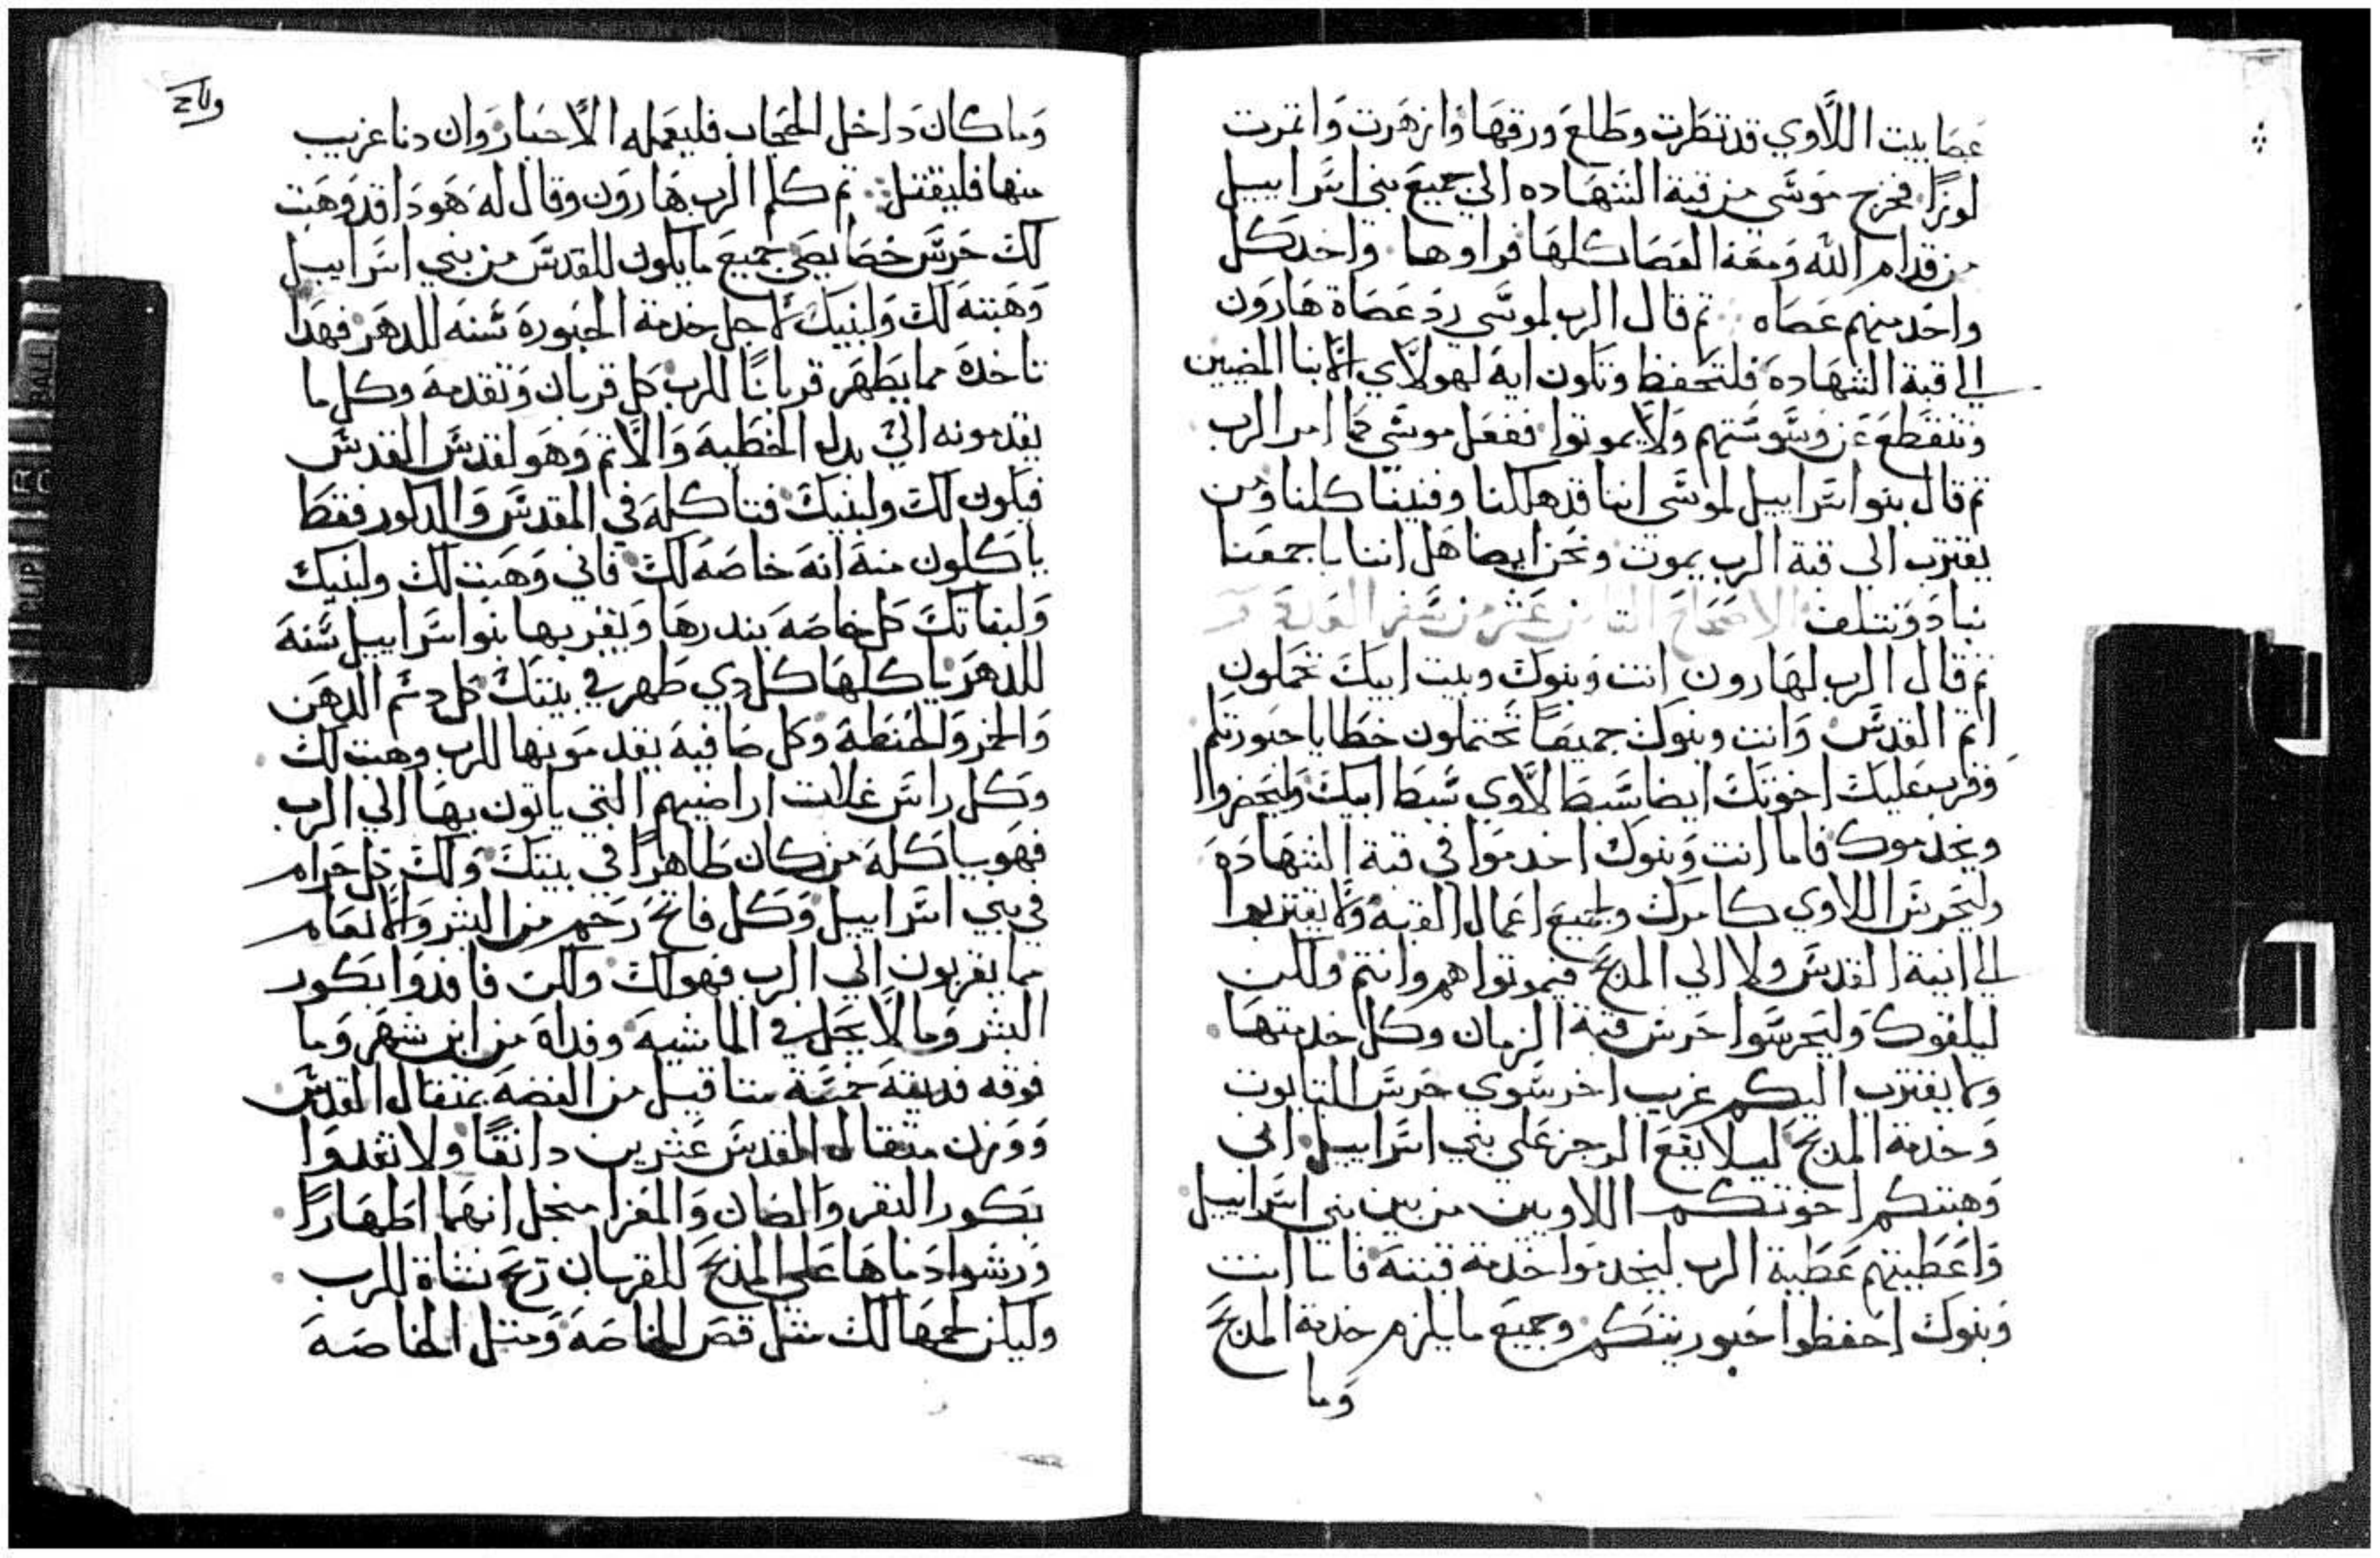 عصا بيت اللاوي قد تطرت وطلع ورقها وازهرت واثمرت
لوزًا فخرج موسي من قبة الشهاده الي جميع بني اسراييل
من قدام الله ومعه العصا كلها فراوها واخد كل
واحد منهم عصاه ثم قال الرب لموسي رد عصاة هارون
الي قبة الشهادة فلتحفظ وتكون اية لهولاي الابنا
وتنقطع عن وسوستهم ولا يموتوا ففعل موسي كما امر الرب
ثم قال بنو اسراييل لموسي اننا قد هلكنا وفنينا كلنا ومن
يقترب الي قبة الرب يموت ونحن ايضا هل اننا باجمعنا
نباد ونتلف الاصحاح الثامن عشر من سفر العدد
ثم قال الرب لهارون انت وبنوك وبيت ابيك تحملون
اثم القدس وانت وبنوك جميعًا تحتملون خطايا حبورتكم
وقرب عليك اخوتك ايضا سبط لاوي سبط ابيك وليحضروا
ويخدموك فاما انت وبنوك اخدموا في قبة الشهادة
وليحرس اللاوي كامرك وجميع اعمال القبة ولا يقتربوا
الي انية القدس ولا الي المذبح فيموتوا هم وانتم ولكن
ليلقوك وليحرسوا حرس قبة الزمان وكل خدمتها
ولا يقترب اليكم غريب احرسوي حرس التابوت
وخدمة المذبح ليلا يقع الرجز علي بني اسراييل اني
وهبتكم اخوتكم اللاويين من بين بني اسراييل
واعطيتهم عطية الرب ليخدموا خدمة قبته فاما انت
وبنوك احفظوا حبوريتكم وجميع ما يلزم خدمة المذبح
وما
وما كان داخل الحجاب فليعمله الاحبار وان دنا غريب
منها فليقتل ثم كلم الرب هارون وقال له هودا قد وهبت
لك حرس خصايصي جميع ما يكون للقدس من بني اسراييل
وهبته لك ولبنيك لاجل خدمة الحبورة سنه للدهر فهدا
تاخدة مما يطهر قربانًا للرب كل قربان وتقدمة وكل ما
يقدمونه الي بدل الخطية والاثم وهو لقدس القدس
فيكون لك ولبنيك فتاكله في المقدس والدكور فقط
ياكلون منة انه خاصه لك فاني وهبت لك ولبنيك
ولبناتك كل خاصه بندرها ويقربها بنو اسراييل سنة
للدهر ياكلها كل دي طهر في بيتك كل دسم الدهن
والخمر والحنطة وكل صافية يقدمونها للرب وهبت لك
وكل راس غلات اراضيهم التي ياتون بها الي الرب
فهو ياكلة من كان طاهرًا في بيتك ولك كل حرام
في بني اسراييل وكل فاتح رحم من البشر والانعام
مما يقربون الي الرب فهو لك ولكن فافدوا بكور
البشر وما لا يحل في الماشية وفداة من ابن شهر وما
فوقه فديته خمسة مثاقيل من الفضة بمثقال القدس
ووزن مثقال المقدس عشرين دانقًا ولا تفدوا
بكور البقر والضان والمعزا منجل انهما اطهارًا
ورشوا دماها علي المذبح للقربان نشاة للرب
وليكن لحمها لك مثل قص الخاصه ومثل الخاصة